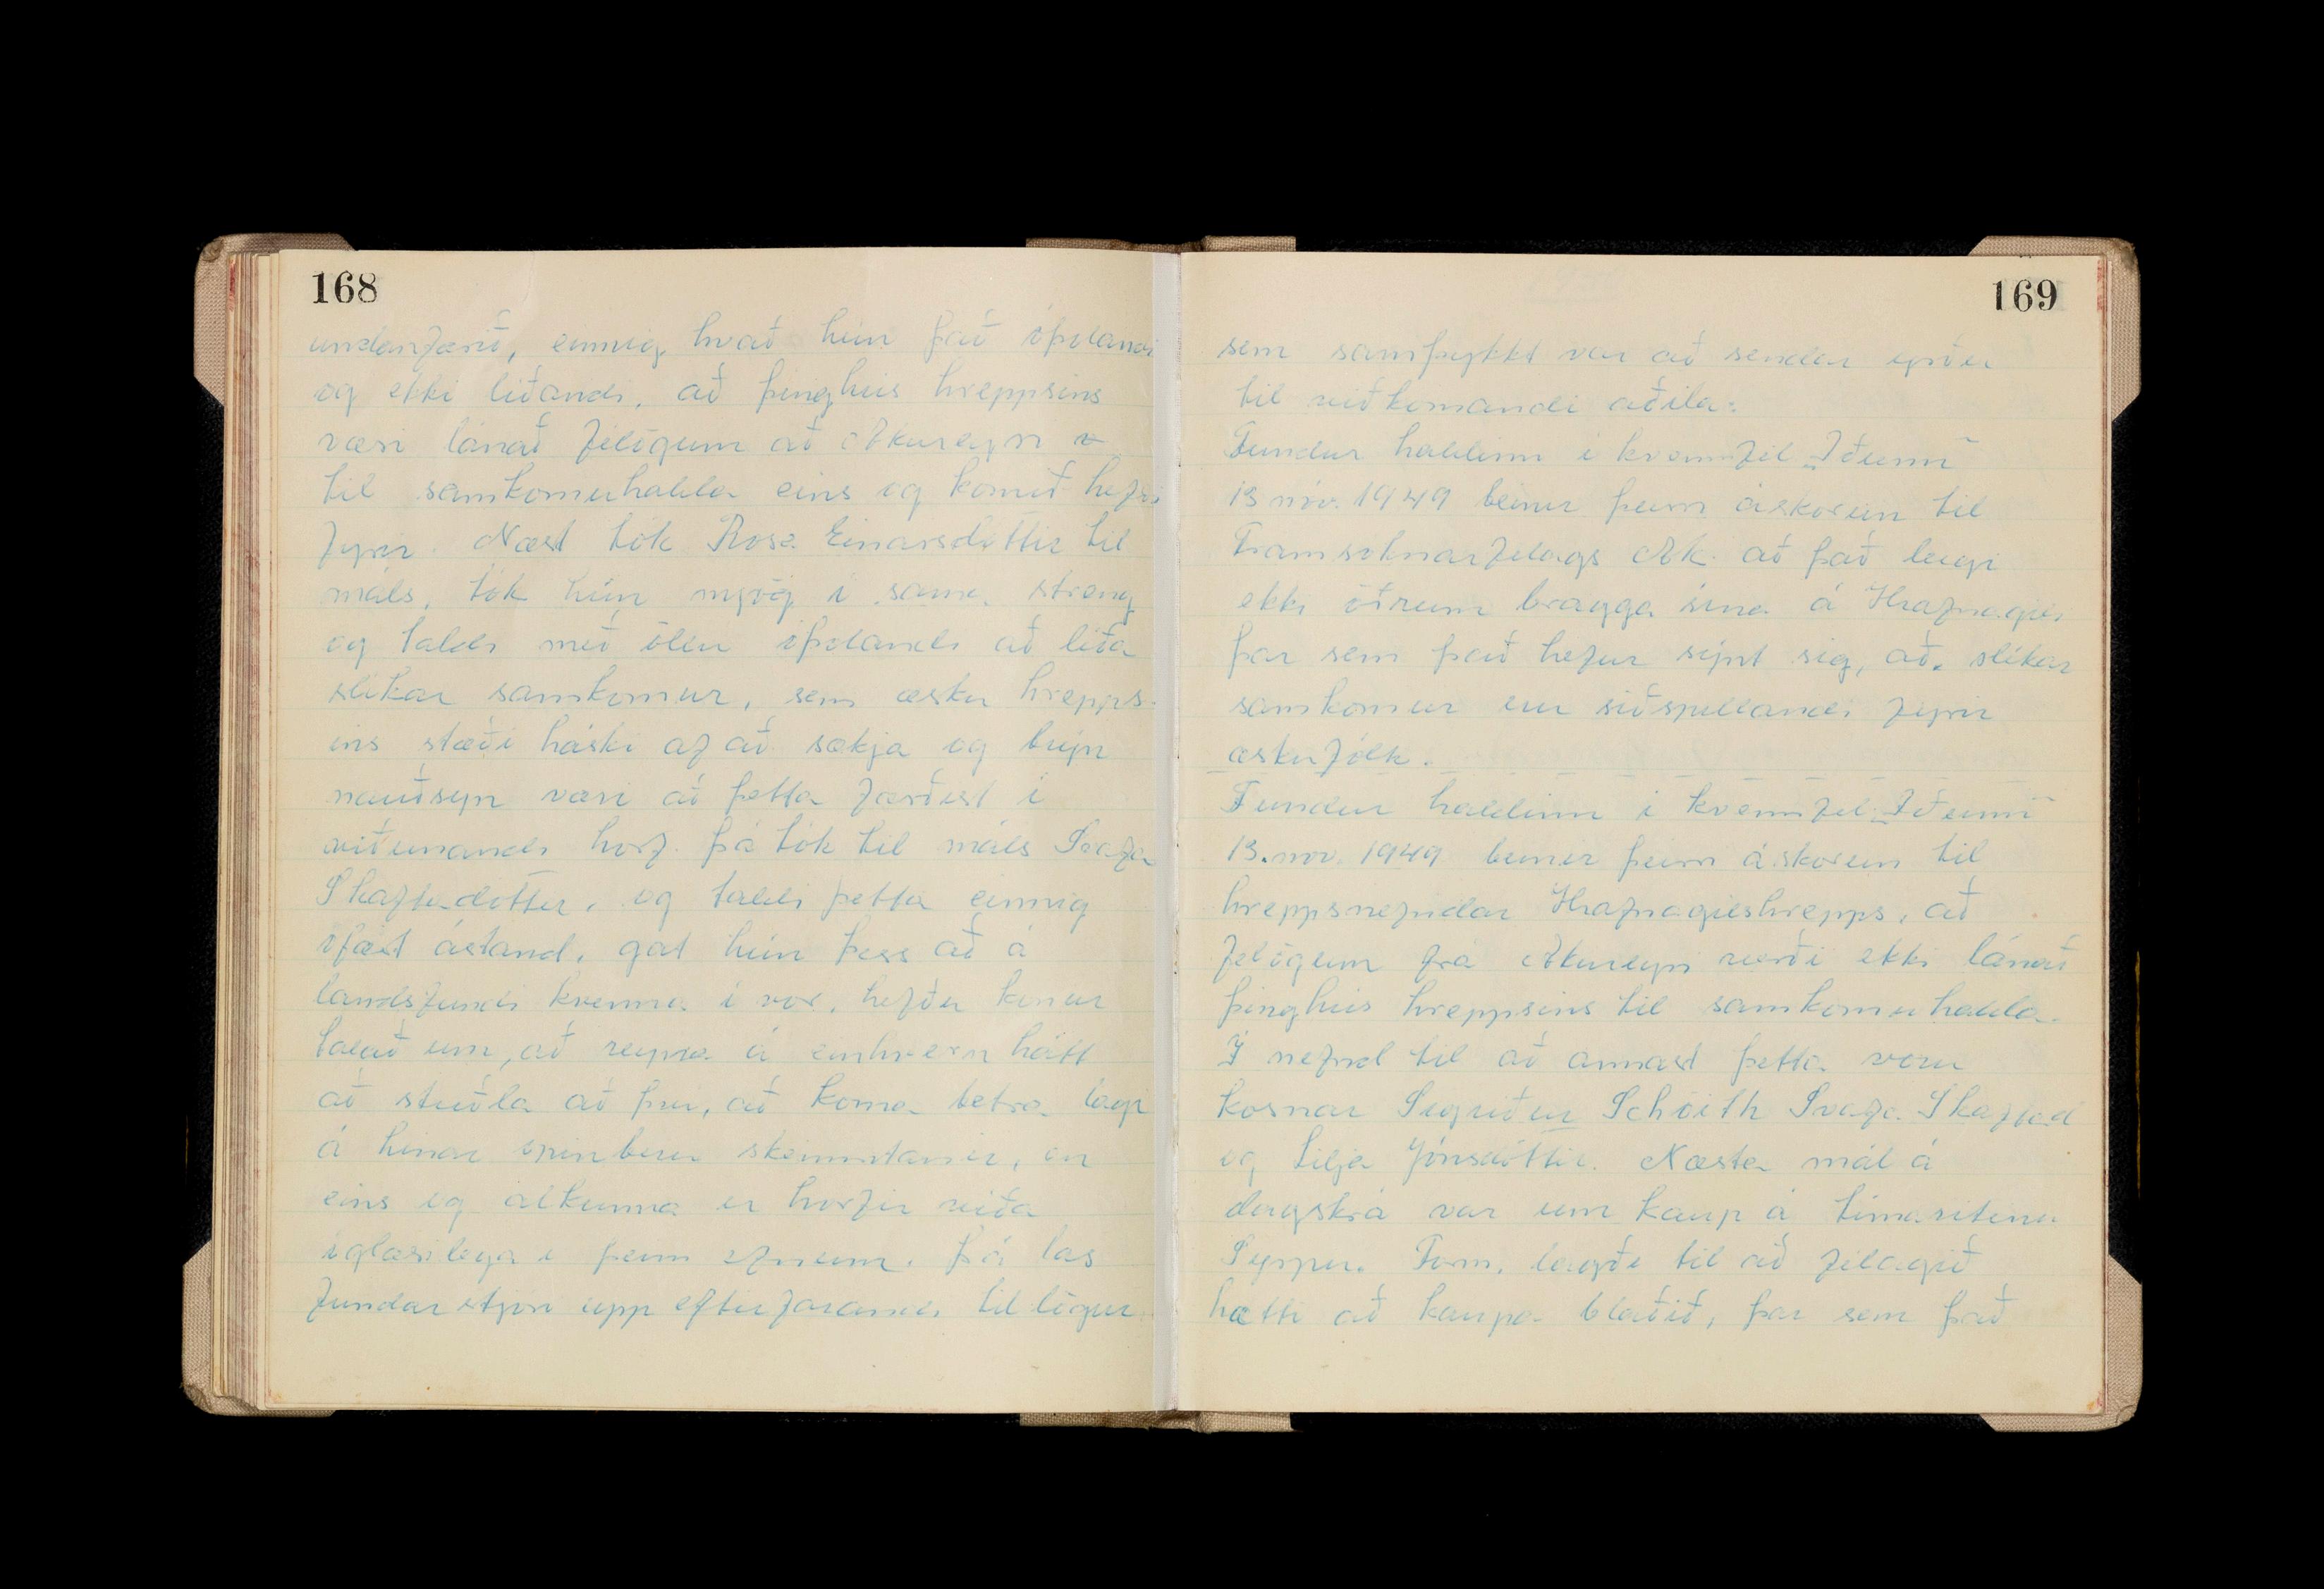 168
undanfarið, einnig, hvað hún það óþolandi
og ekki líðandi, að þinghús hreppsins
væri lánað félögum að Akureyri
til samkomuhalda eins og komið hefði
fyrir. Næst tók Rósa Einarsdóttir til
máls, tók hún mjög í sama streng
og taldi með öllu óþolandi að líða
slíkar samkomur, sem æsku hrepps-
ins stæði háski af að sækja og brýn
nauðsyn væri að þetta færðist í
viðunandi horf. Þá tók til máls Svafa
Skaftadóttir, og taldi þetta einnig
ófært ástand, gat hún þess að á
landsfundi kvenna í vor, hefðu konur
talað um, að reyna á einhvern hátt
að stuðla að því, að koma betra lagi
á hinar opinberu skemmtanir, en
eins og alkunna er horfir víða
óglæsilega í þeim efnum. Þá las
fundarstjóri upp eftirfarandi tillögur
169
sem samþykkt var að sendar yrðu
til viðkomandi aðila:
Fundur haldinn í kvennfél „Iðunn"
13 nóv. 1949 beinir þeirri áskorun til
Framsóknarfélags Ak. að það leigi
ekki öðrum bragga sína á Hrafnagili
þar sem það hefur sýnt sig, að slíkar
samkomur eru siðspillandi fyrir
æskufólk.
Fundur haldinn í kvennfél. „Iðunn"
13. nóv. 1949 beinir þeirri áskorun til
hreppsnefndar Hrafnagilshrepps, að
félögum frá Akureyri verði ekki lánað
þinghús hreppsins til samkomuhalda.
Í nefnd til að annast þetta voru
kosnar Sigríður Schöith Svafa Skaftad
og Lilja Jónsdóttir. Næsta mál á
dagskrá var um kaup á tímaritinu
Syrpu. Form. lagði til að félagið
hætti að kaupa blaðið, þar sem það